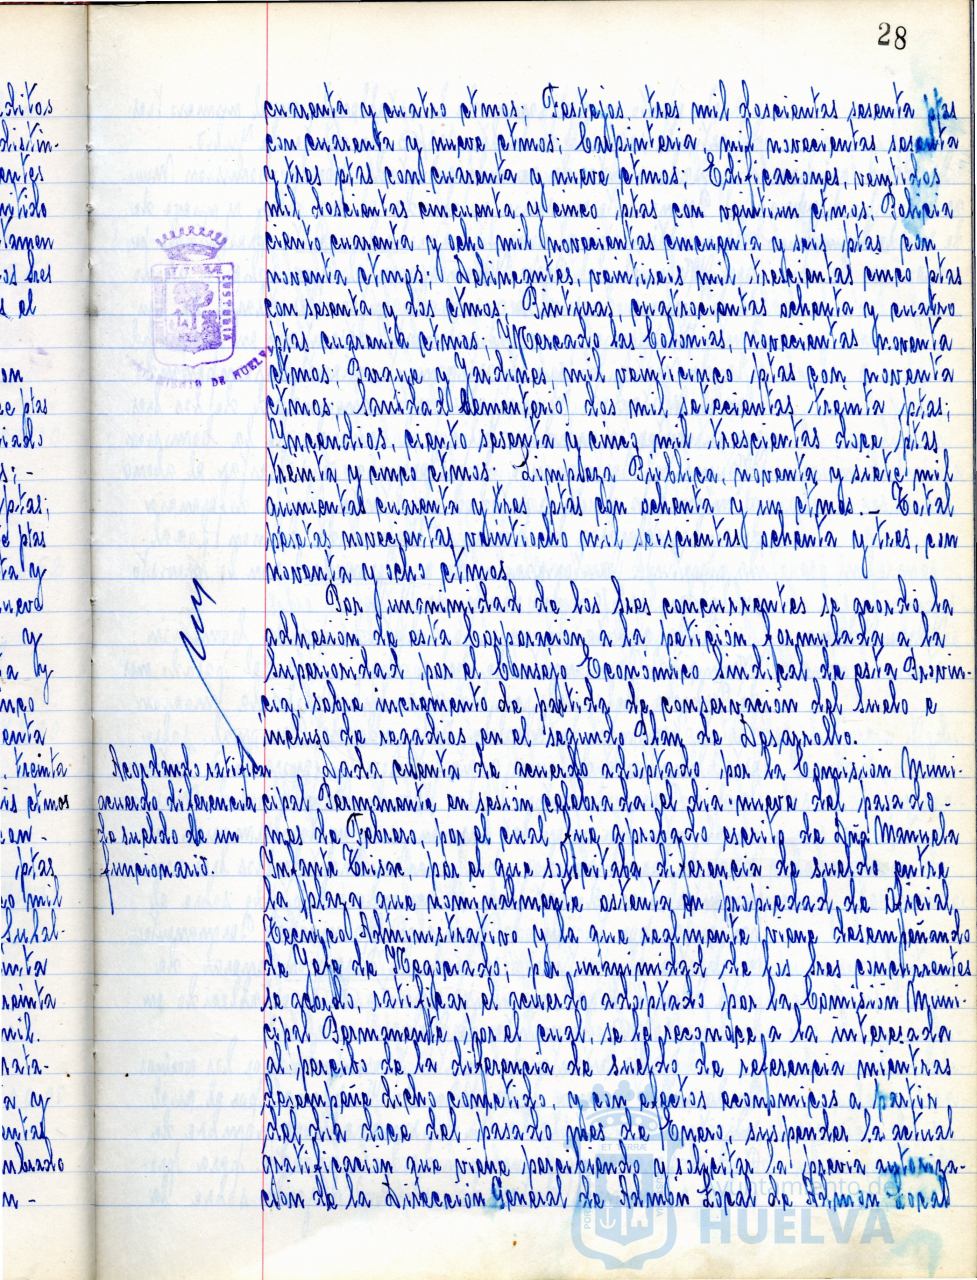 28
cuarenta y cuatro ctmos; Festejos, tres mil doscientas sesenta ptas
con cuarenta y nueve ctmos; Carpinteria, mil novecientas sesenta
y tres ptas con cuarenta y nueve ctmos; Edificaciones, veintidos
mil doscientas cincuenta y cinco ptas con veintiun ctmos; Policia
ciento cuarenta y ocho mil novecientas cincuenta y seis ptas con
noventa ctmos; Delineantes, veintiseis mil trescientas cinco ptas
con sesenta y dos ctmos; Pinturas, cuatrocientas ochenta y cuatro
ptas cuarenta ctmos; Mercado las Colonias, novecientas noventa
ctmos; Parque y Jardines, mil veinticinco ptas con noventa
ctmos; Sanidad (Cementerio) dos mil setecientas treinta ptas;
Yncendios, ciento sesenta y cinco mil trescientas doce ptas
treinta y cinco ctmos; Limpieza Publica, noventa y siete mil
quinientas cuarenta y tres ptas con ochenta y un ctmos. - Total
pesetas novecientas veintiocho mil seiscientas ochenta y tres, con
noventa y ocho ctmos.
Por unanimidad de los Sres concurrentes se acordó, la
adhesion de esta Corporacion a la peticion formulada a la
Superioridad, por el Consejo Economico Sindical de esta Provin-
cia, sobre incremento de partida de conservacion del suelo e
incluso de regadios, en el segundo Plan de Desarrollo.
Acordando ratificar
acuerdo diferencia
de sueldo de un
funcionario.
Dada cuenta de acuerdo adoptado por la Comision Muni-
cipal Permanente en sesión celebrada el dia nueve del pasado
mes de Febrero, por el cual fué aprobado escrito de Dña Manuela
Infante, por el que solicitaba diferencia de sueldo entre
la plaza que nominalmente ostenta en propiedad de Oficial
Tecnico Administrativo y la que realmente viene desempeñando
de Jefe de Negociado; por unanimidad de los Sres concurrentes
se acordó, ratificar el acuerdo adoptado por la Comisión Muni-
cipal Permanente, por el cual, se le reconoce a la interesada
al percibo de la diferencia de sueldo de referencia mientras
desempeñe dicho cometido, y con efectos economicos a partir
del dia doce del pasado mes de Enero, suspender la actual
gratificacion que viene percibiendo y solicitar la previa autoriza-
cion de la Dirección General de Admón Local
Ayuntamiento de
HUELVA